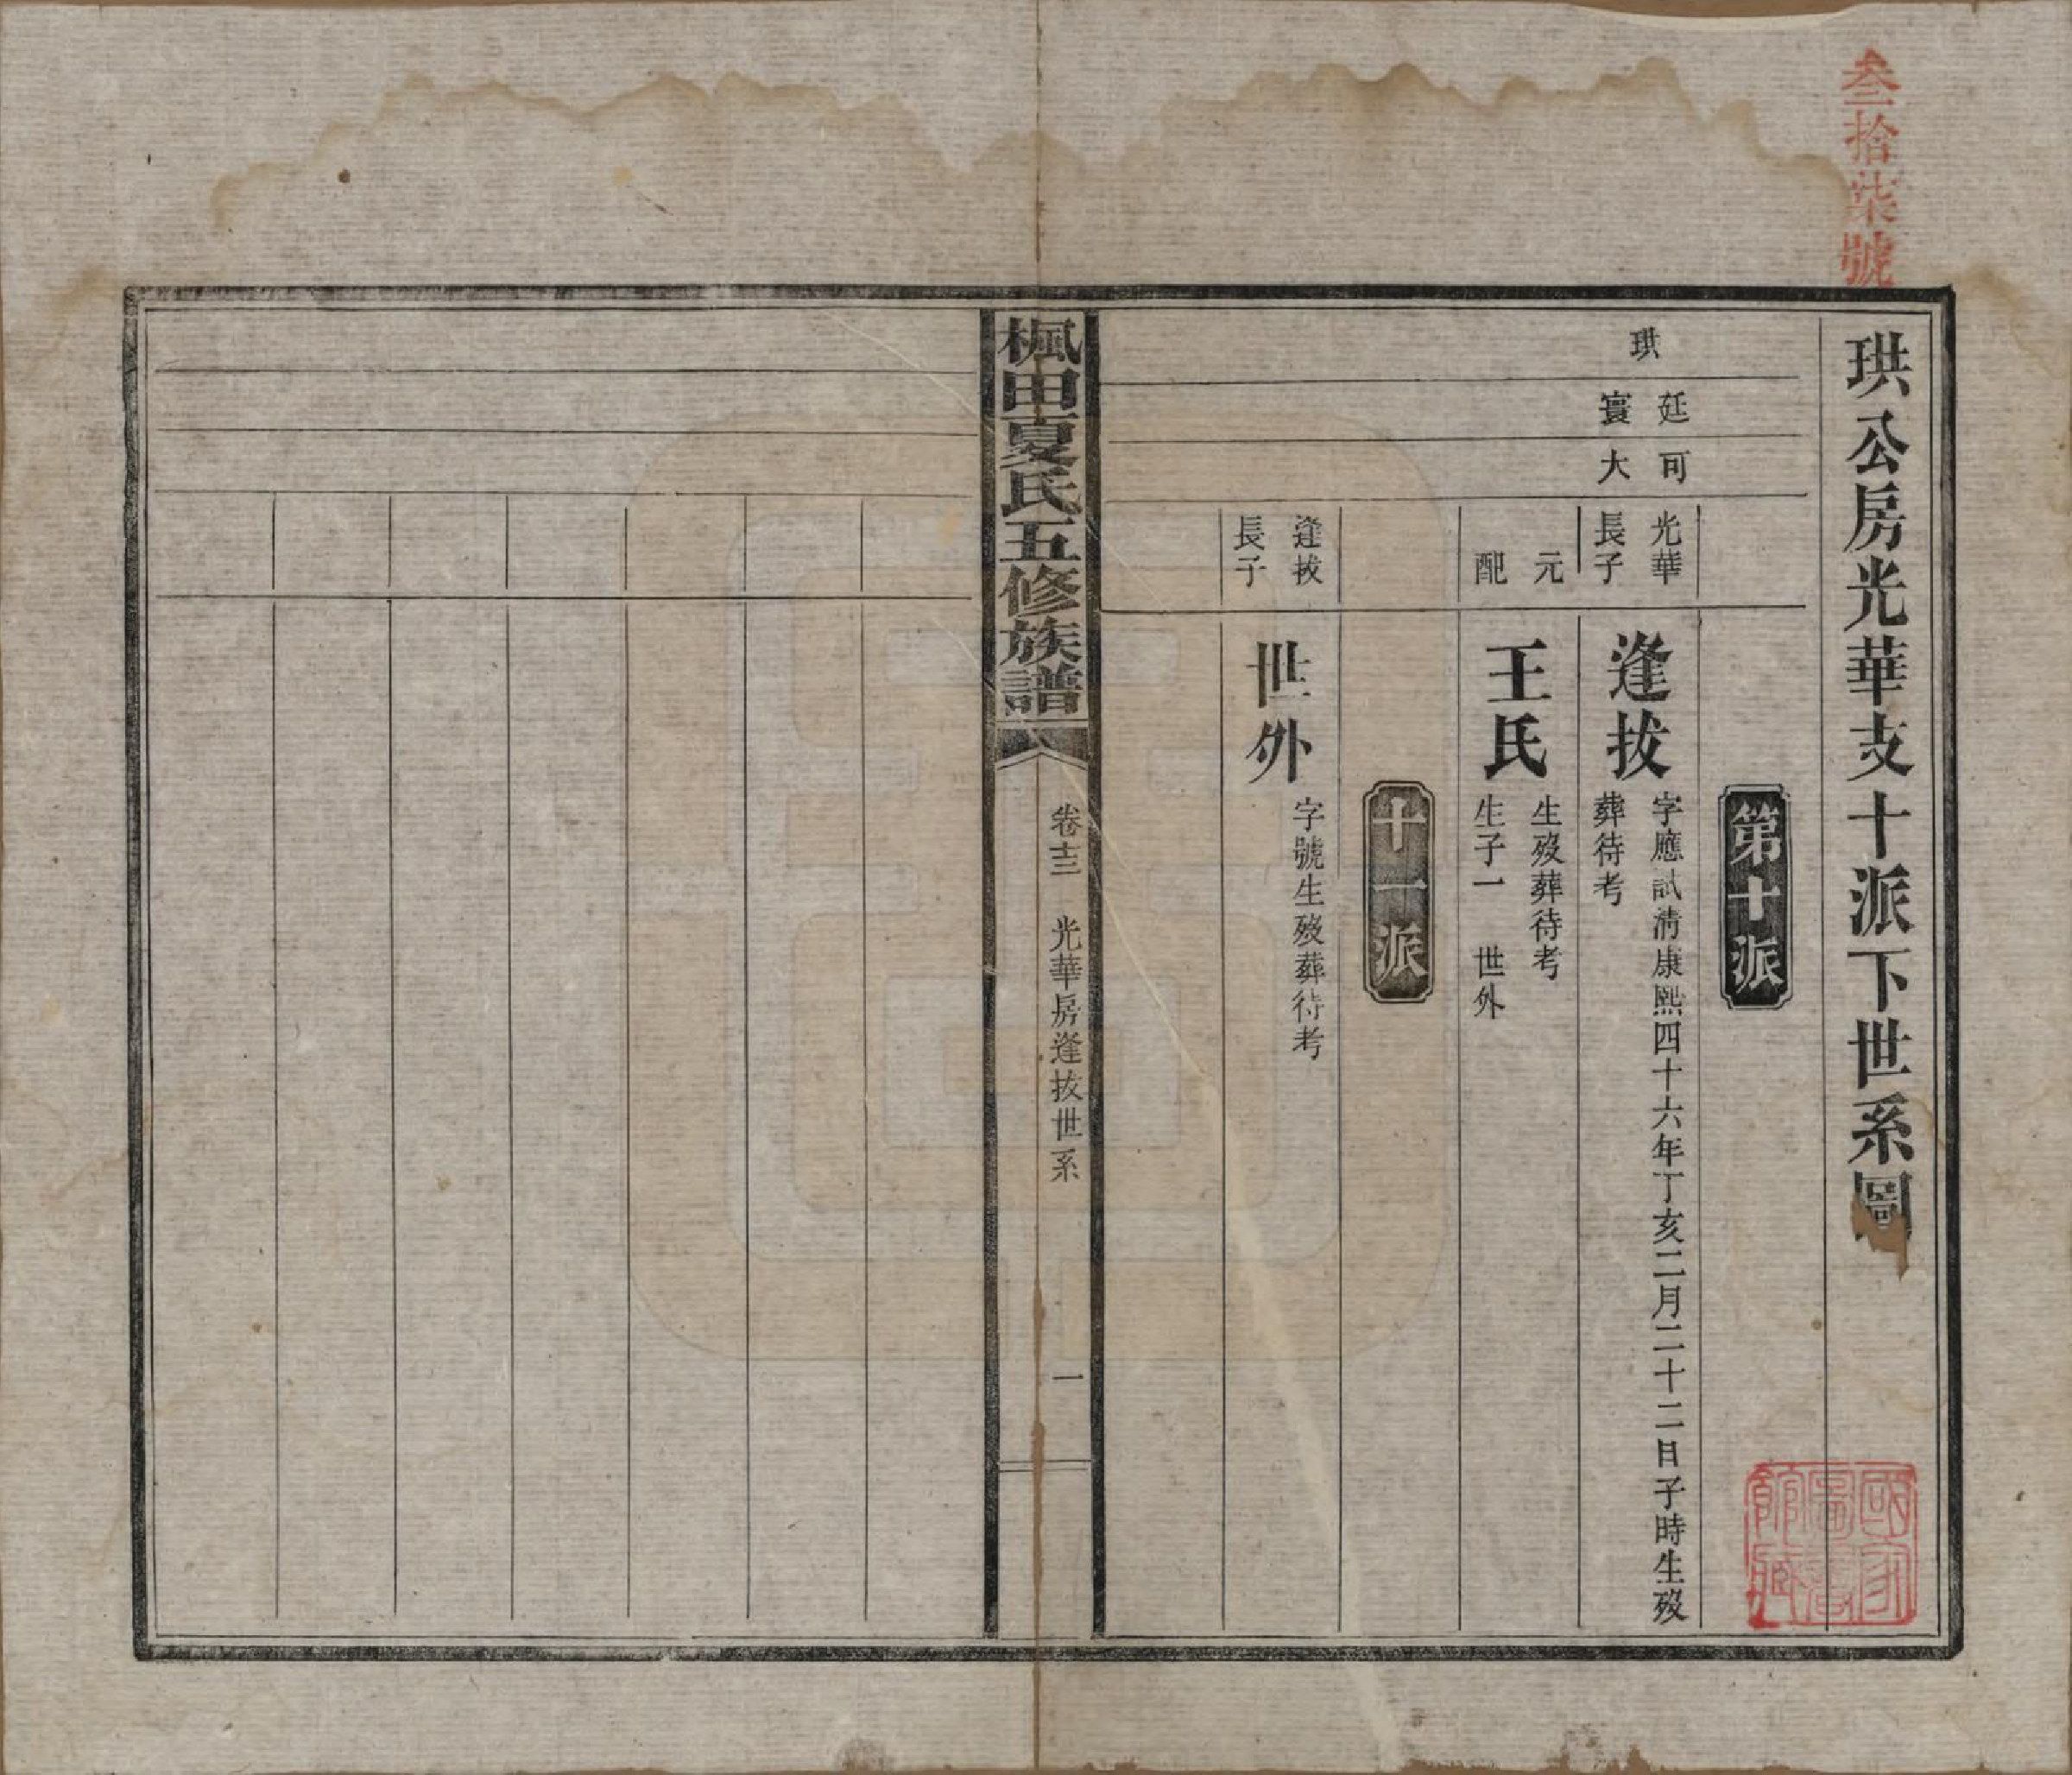 叁拾柒號
珙公房光華支十派下世系圖
第十派
珙
廷
寰
可
大
光華
長子
逢拔
字應試清康熙四十六年丁亥二月二十二日子時生歿
葬待考
元
配
王氏
生歿葬待考
生子一　世外
十一派
逢拔
長子
世外
字號生歿葬待考
楓田夏氏五修族譜
卷十三　光華房逢拔世系
一
國家
圖書
館藏